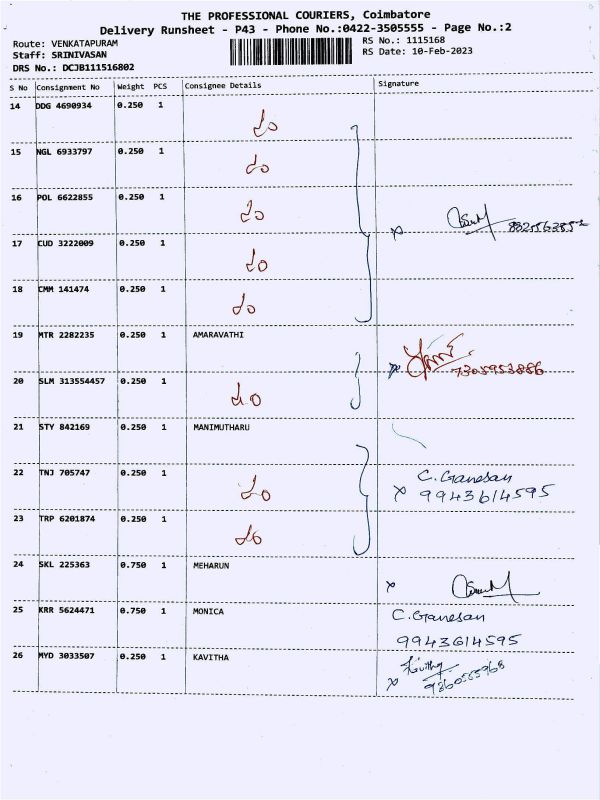 THE PROFESSIONAL COURIERS, Coimbatore
Delivery Runsheet - P43 - Phone No.:0422-3505555 - Page No.:2
Route: VENKATAPURAM
Staff: SRINIVASAN
DRS No.: DCJB111516802
RS No.: 1115168
RS Date: 10-Feb-2023
S No Consignment No Weight PCS Consignee Details Signature
14 DDG 4690934 0.250 1
15 NGL 6933797 0.250 1
16 POL 6622855 0.250 1
17 CUD 3222009 0.250 1
18 CMM 141474 0.250 1
19 MTR 2282235 0.250 1 AMARAVATHI
7305953886
20 SLM 313554457 0.250 1
21 STY 842169 0.250 1 MANIMUTHARU
22 TNJ 705747 0.250 1 C. Ganesan
x 9943614595
23 TRP 6201874 0.250 1
24 SKL 225363 0.750 1 MEHARUN
x
25 KRR 5624471 0.750 1 MONICA C. Ganesan
9943614595
26 MYD 3033507 0.250 1 KAVITHA
x 9360555968